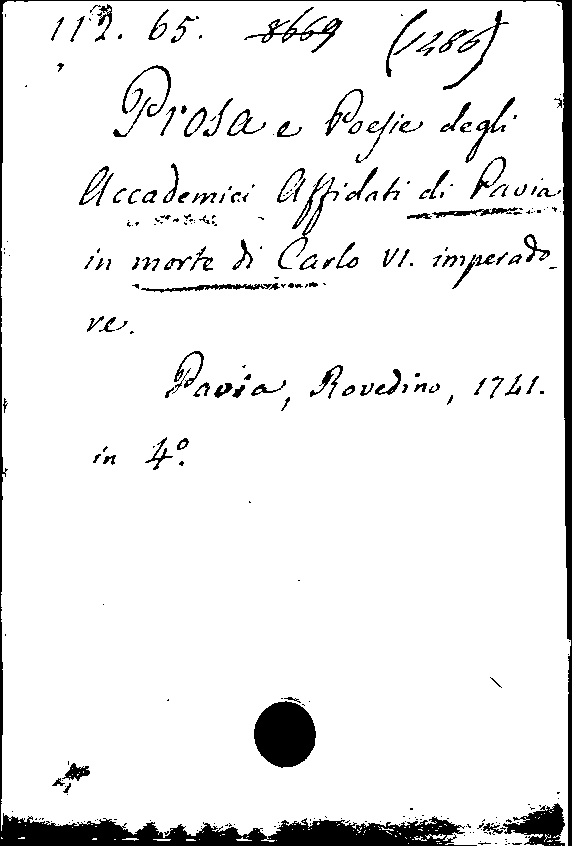 112. 65. 8669 (1286)
Prosa e Poesie degli
Accademici Affidati di Pavia
in morte di Carlo VI. imperado-
re.
Pavia, Rovedino, 1741.
in 4º.